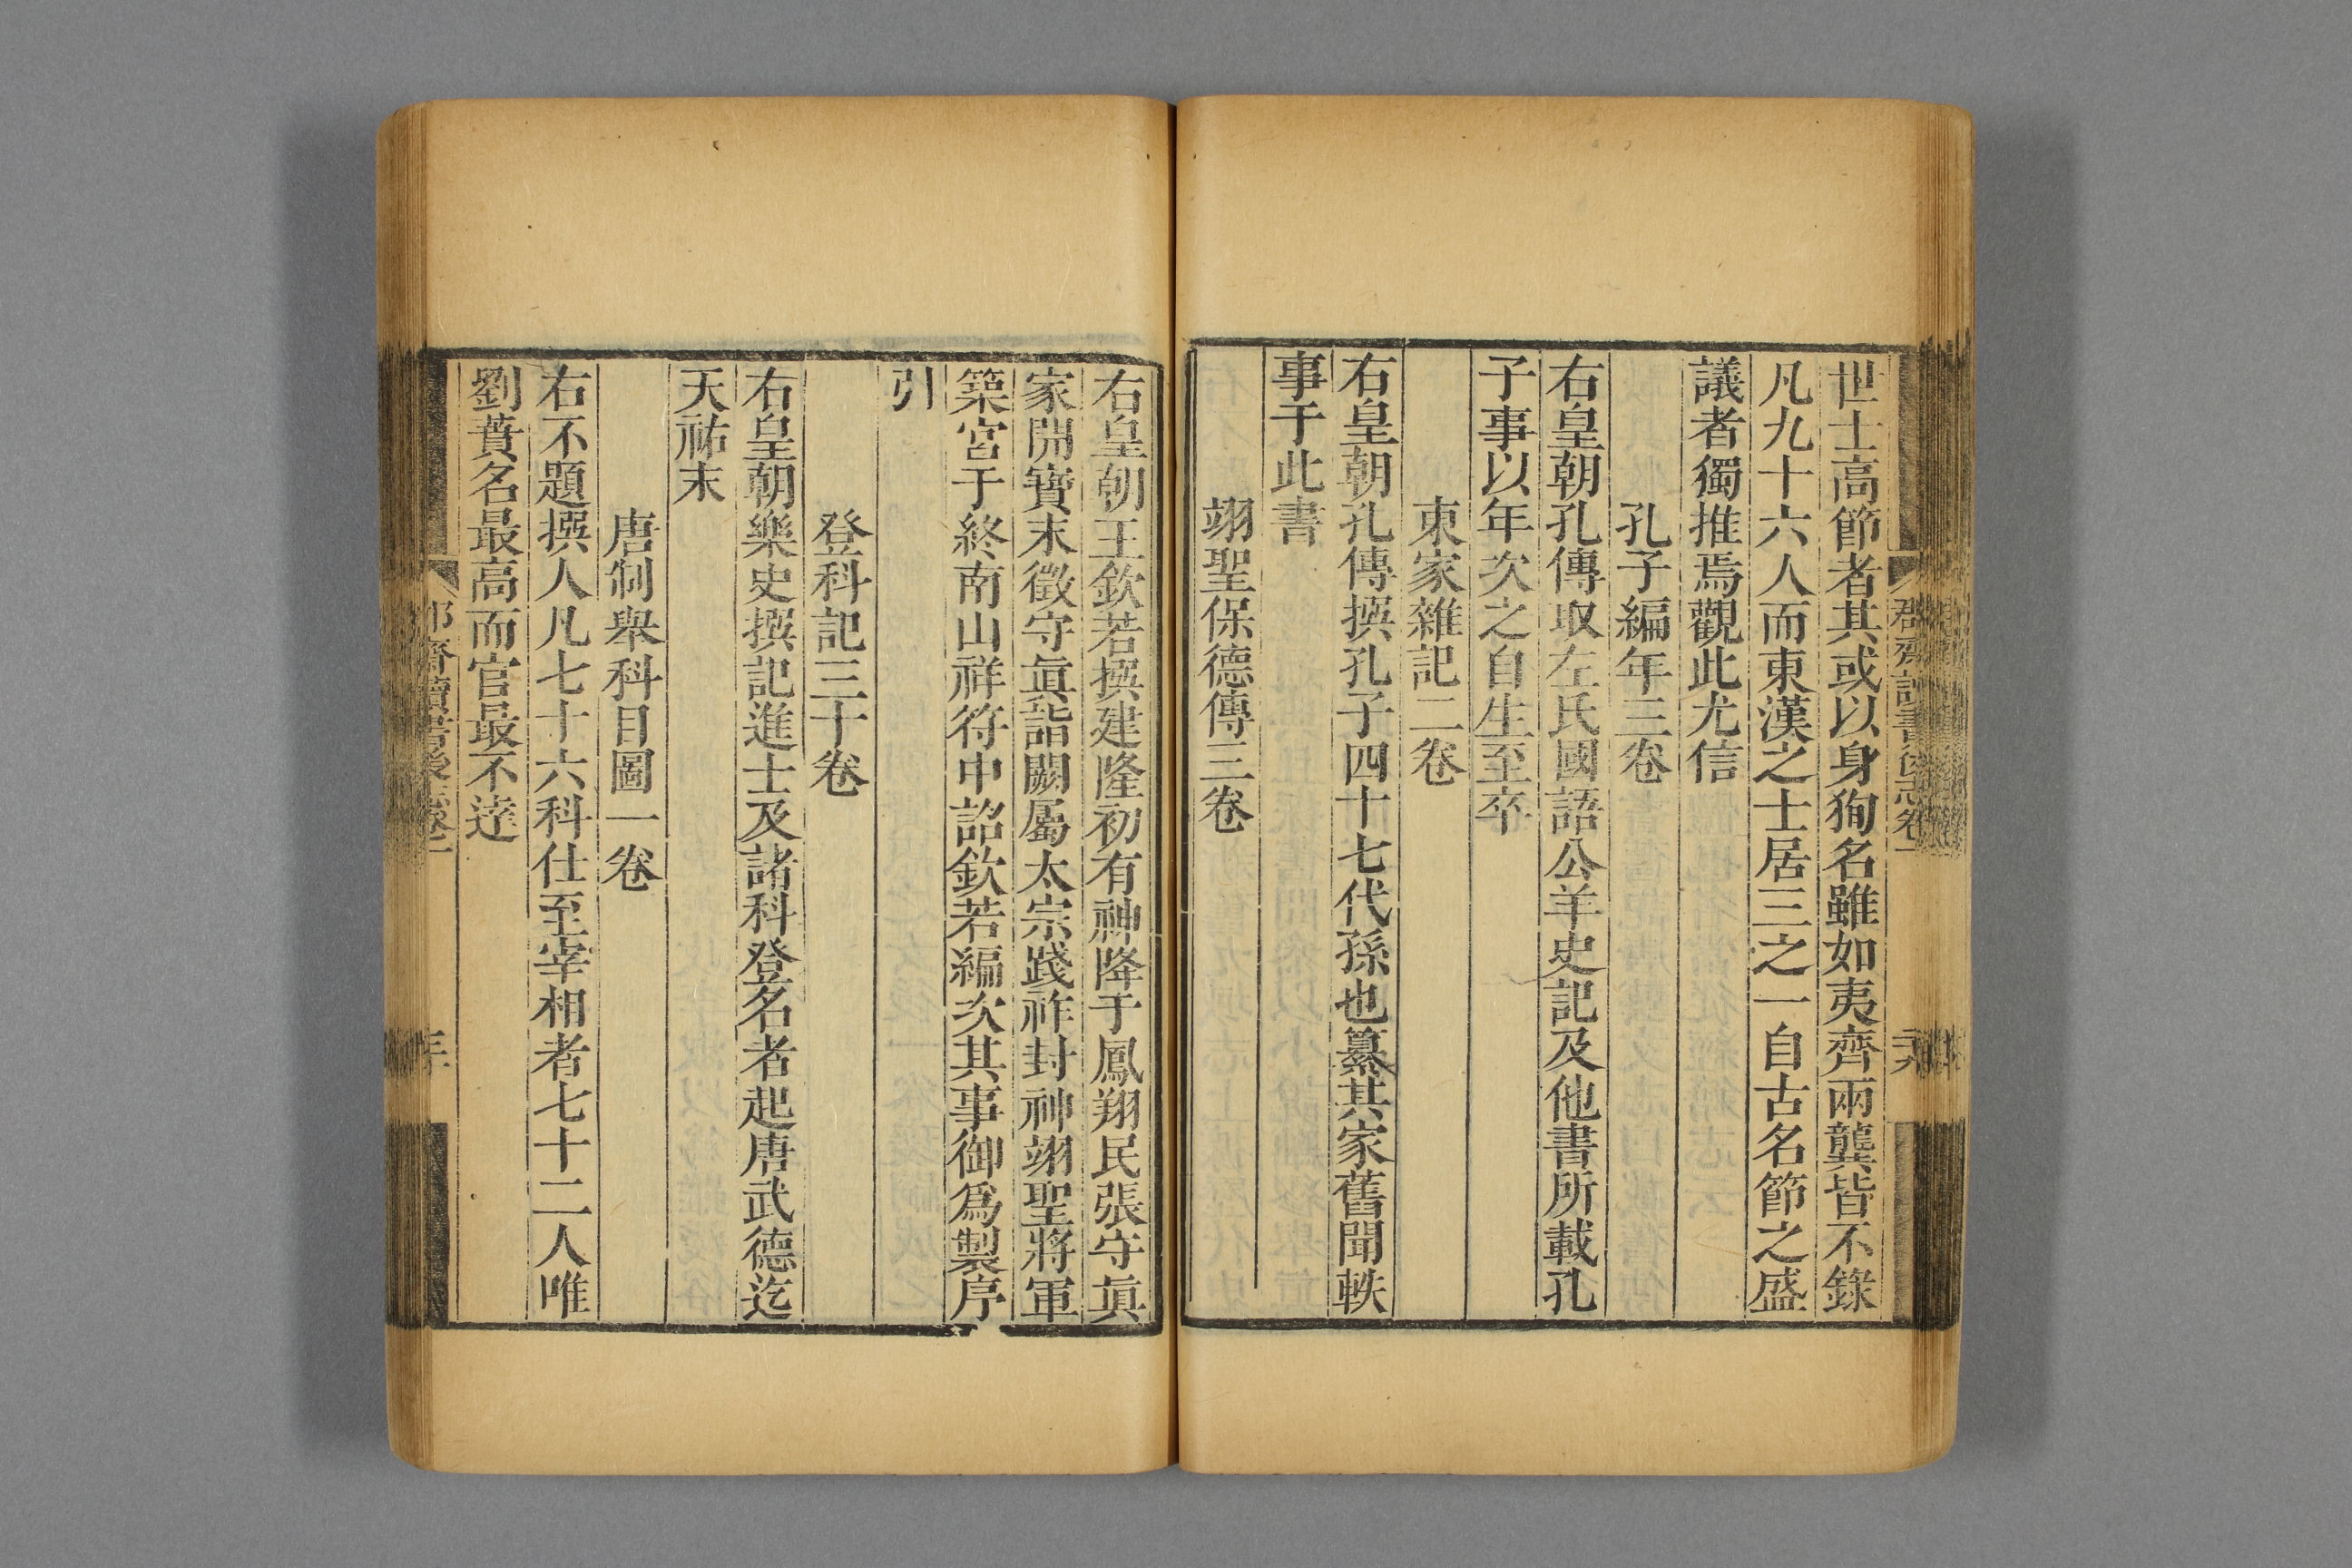 世士高節者其或以身狥名雖如夷齊兩龔皆不錄
凡九十六人而東漢之士居三之一自古名節之盛
議者獨推焉觀此尤信
孔子編年三卷
右皇朝孔傳取左氏國語公羊史記及他書所載孔
子事以年次之自生至卒
東家雜記二卷
右皇朝孔傳撰孔子四十七代孫也纂其家舊聞軼
事于此書
翊聖保德傳三卷
右皇朝王欽若撰建隆初有神降于鳳翔民張守眞
家開寶末徵守眞詣闕屬太宗踐祚封神翊聖將軍
築宮于終南山祥符中詔欽若編次其事御爲製序
引
登科記三十卷
右皇朝樂史撰記進士及諸科登名者起唐武德迄
天祐末
唐制舉科目圖一卷
右不題撰人凡七十六科仕至宰相者七十二人唯
劉蕡名最高而官最不達